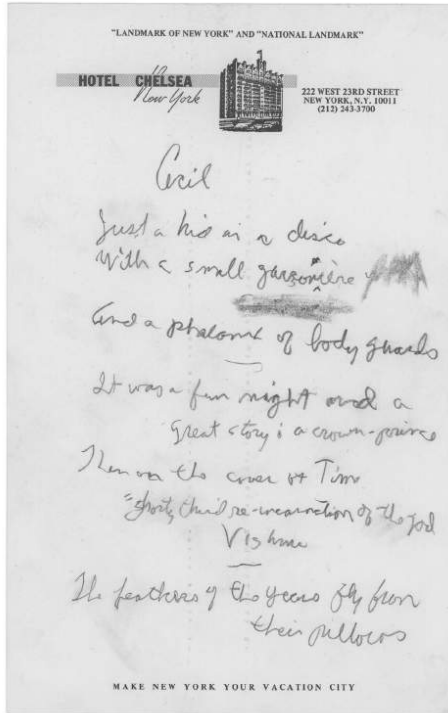 "LANDMARK OF NEW YORK" AND "NATIONAL LANDMARK"
HOTEL CHELSEA
New York
222 WEST 23RD STREET
NEW YORK, N.Y. 10011
(212) 243-3700
Cecil
Just a kid in a disco
With a small garsonière
And a phalanx of body guards
It was a fun night and a
Great story: a crown-prince
Then on the cover of Time
third re-incarnation of the god
Vishnu
The feathers of the years fly from
their pillows
MAKE NEW YORK YOUR VACATION CITY